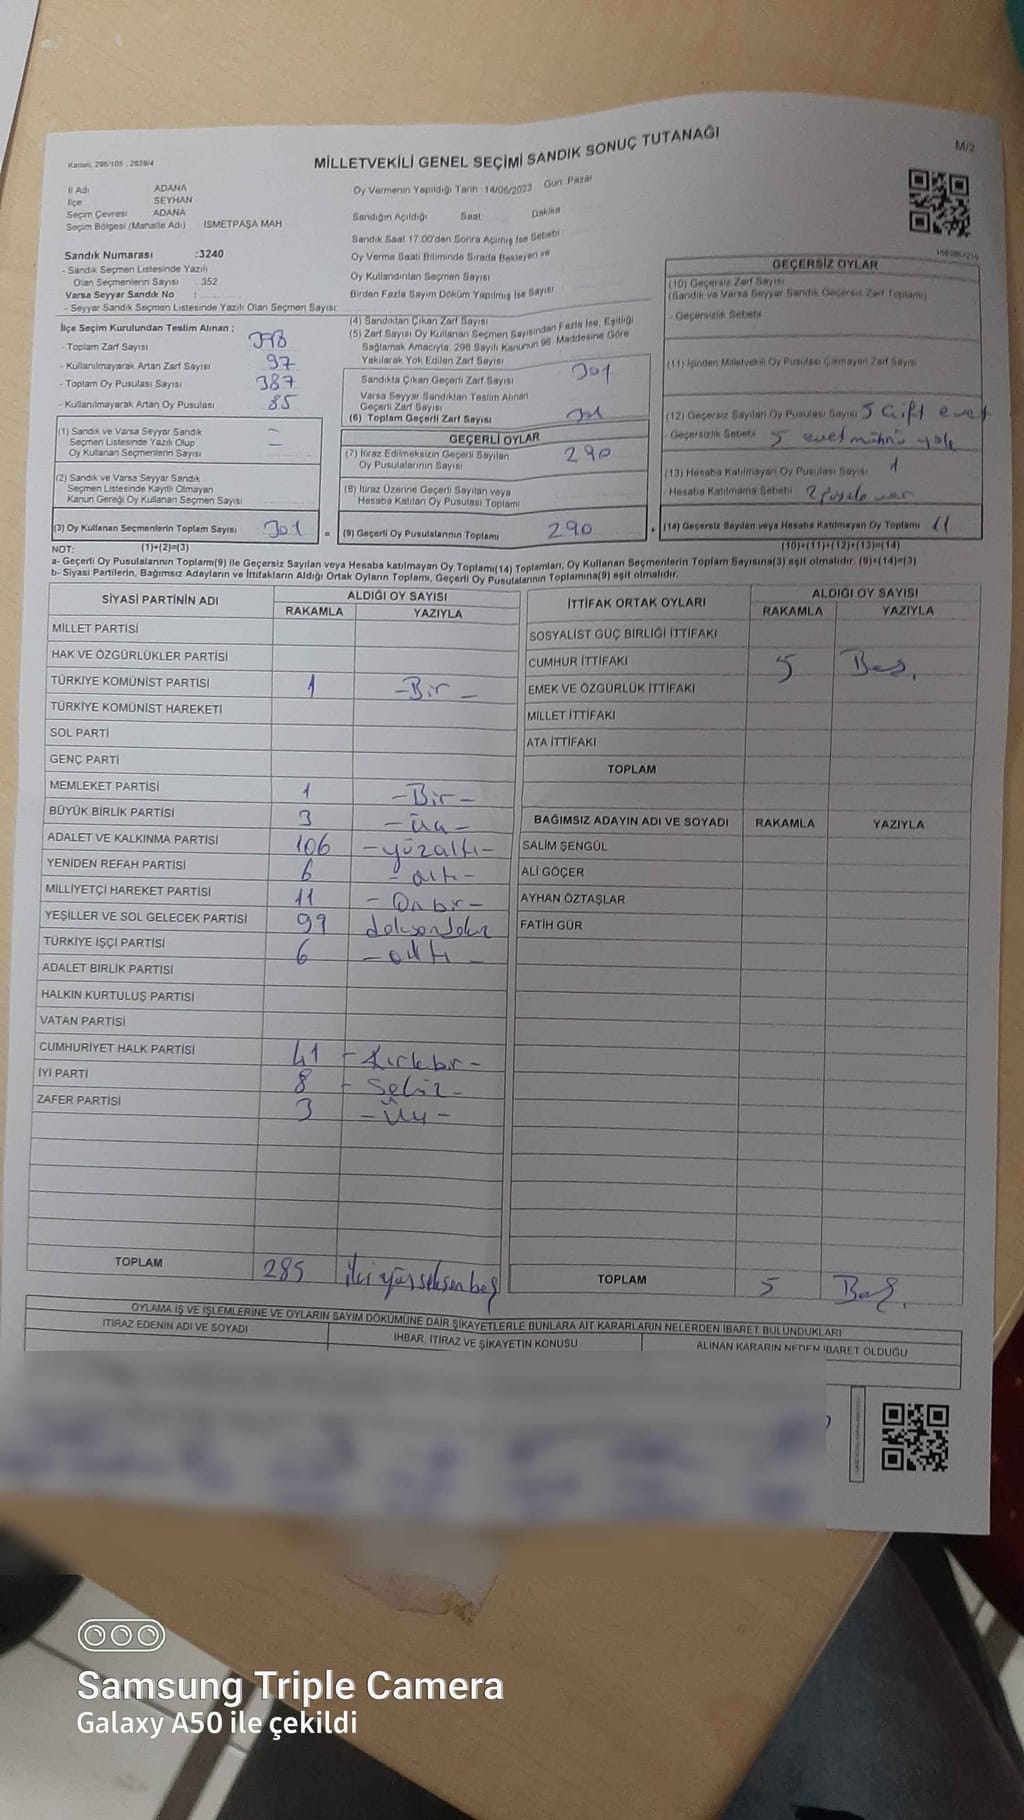 Kanun: 298/105 , 2839/4
MİLLETVEKİLİ GENEL SEÇİMİ SANDIK SONUÇ TUTANAĞI
M/2
İl Adı ADANA
İlçe SEYHAN
Seçim Çevresi ADANA
Seçim Bölgesi (Mahalle Adı) İSMETPAŞA MAH
Sandık Numarası :3240
- Sandık Seçmen Listesinde Yazılı
Olan Seçmenlerin Sayısı : 352
Varsa Seyyar Sandık No :
- Seyyar Sandık Seçmen Listesinde Yazılı Olan Seçmen Sayısı:
Oy Vermenin Yapıldığı Tarih :14/05/2023 Gün: Pazar
Sandığın Açıldığı Saat: Dakika
Sandık Saat 17:00'den Sonra Açılmış İse Sebebi :
Oy Verme Saati Bitiminde Sırada Bekleyen ve
Oy Kullandırılan Seçmen Sayısı
Birden Fazla Sayım Döküm Yapılmış İse Sayısı :
İlçe Seçim Kurulundan Teslim Alınan ;
- Toplam Zarf Sayısı 398
- Kullanılmayarak Artan Zarf Sayısı 97
- Toplam Oy Pusulası Sayısı 387
- Kullanılmayarak Artan Oy Pusulası 85
(1) Sandık ve Varsa Seyyar Sandık
Seçmen Listesinde Yazılı Olup
Oy Kullanan Seçmenlerin Sayısı
(2) Sandık ve Varsa Seyyar Sandık
Seçmen Listesinde Kayıtlı Olmayan
Kanun Gereği Oy Kullanan Seçmen Sayısı
(3) Oy Kullanan Seçmenlerin Toplam Sayısı 301
(4) Sandıktan Çıkan Zarf Sayısı
(5) Zarf Sayısı Oy Kullanan Seçmen Sayısından Fazla İse, Eşitliği
Sağlamak Amacıyla, 298 Sayılı Kanunun 98. Maddesine Göre
Yakılarak Yok Edilen Zarf Sayısı
Sandıkta Çıkan Geçerli Zarf Sayısı 301
Varsa Seyyar Sandıktan Teslim Alınan
Geçerli Zarf Sayısı
(6) Toplam Geçerli Zarf Sayısı 301
GEÇERLİ OYLAR
(7) İtiraz Edilmeksizin Geçerli Sayılan
Oy Pusulalarının Sayısı 290
(8) İtiraz Üzerine Geçerli Sayılan veya
Hesaba Katılan Oy Pusulası Toplamı
= (9) Geçerli Oy Pusulalarının Toplamı 290 +
GEÇERSİZ OYLAR
(10) Geçersiz Zarf Sayısı
(Sandık ve Varsa Seyyar Sandık Geçersiz Zarf Toplamı)
- Geçersizlik Sebebi
(11) İçinden Milletvekili Oy Pusulası Çıkmayan Zarf Sayısı
(12) Geçersiz Sayılan Oy Pusulası Sayısı 5 çift evet
- Geçersizlik Sebebi 5 evet mührü yok
(13) Hesaba Katılmayan Oy Pusulası Sayısı 1
- Hesaba Katılmama Sebebi 2 pusula var
(14) Geçersiz Sayılan veya Hesaba Katılmayan Oy Toplamı 11
NOT: (1)+(2)=(3)
(10)+(11)+(12)+(13)=(14)
a- Geçerli Oy Pusulalarının Toplamı(9) ile Geçersiz Sayılan veya Hesaba katılmayan Oy Toplamı(14) Toplamları, Oy Kullanan Seçmenlerin Toplam Sayısına(3) eşit olmalıdır. (9)+(14)=(3)
b- Siyasi Partilerin, Bağımsız Adayların ve İttifakların Aldığı Ortak Oyların Toplamı, Geçerli Oy Pusulalarının Toplamına(9) eşit olmalıdır.
SİYASİ PARTİNİN ADI ALDIĞI OY SAYISI
RAKAMLA YAZIYLA
MİLLET PARTİSİ
HAK VE ÖZGÜRLÜKLER PARTİSİ
TÜRKİYE KOMÜNİST PARTİSİ 1 -Bir-
TÜRKİYE KOMÜNİST HAREKETİ
SOL PARTİ
GENÇ PARTİ
MEMLEKET PARTİSİ 1 -Bir-
BÜYÜK BİRLİK PARTİSİ 3 -üç-
ADALET VE KALKINMA PARTİSİ 106 -yüzaltı-
YENİDEN REFAH PARTİSİ 6 -altı-
MİLLİYETÇİ HAREKET PARTİSİ 11 -Onbir-
YEŞİLLER VE SOL GELECEK PARTİSİ 99 doksandokuz
TÜRKİYE İŞÇİ PARTİSİ 6 -altı-
ADALET BİRLİK PARTİSİ
HALKIN KURTULUŞ PARTİSİ
VATAN PARTİSİ
CUMHURİYET HALK PARTİSİ 41 -Kırkbir-
İYİ PARTİ 8 -Sekiz-
ZAFER PARTİSİ 3 -Üç-
TOPLAM 285 ikiyüzseksenbeş
İTTİFAK ORTAK OYLARI ALDIĞI OY SAYISI
RAKAMLA YAZIYLA
SOSYALİST GÜÇ BİRLİĞİ İTTİFAKI
CUMHUR İTTİFAKI 5 Beş.
EMEK VE ÖZGÜRLÜK İTTİFAKI
MİLLET İTTİFAKI
ATA İTTİFAKI
TOPLAM
BAĞIMSIZ ADAYIN ADI VE SOYADI RAKAMLA YAZIYLA
SALİM ŞENGÜL
ALİ GÖÇER
AYHAN ÖZTAŞLAR
FATİH GÜR
TOPLAM 5 Beş.
OYLAMA İŞ VE İŞLEMLERİNE VE OYLARIN SAYIM DÖKÜMÜNE DAİR ŞİKAYETLERLE BUNLARA AİT KARARLARIN NELERDEN İBARET BULUNDUKLARI
İTİRAZ EDENİN ADI VE SOYADI İHBAR, İTİRAZ VE ŞİKAYETİN KONUSU ALINAN KARARIN NEDEN İBARET OLDUĞU
Samsung Triple Camera
Galaxy A50 ile çekildi